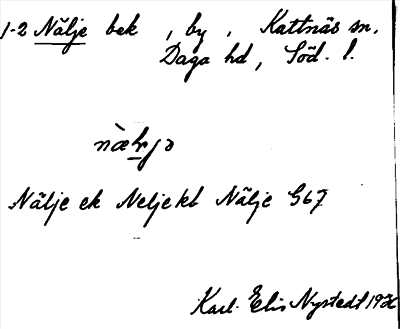 1-2 Nälje bek , by , Kattnäs sn.
Daga hd , Söd. l.
Nälje ek Neljekt Nälje G67
Karl-Elis Nystedt 1936